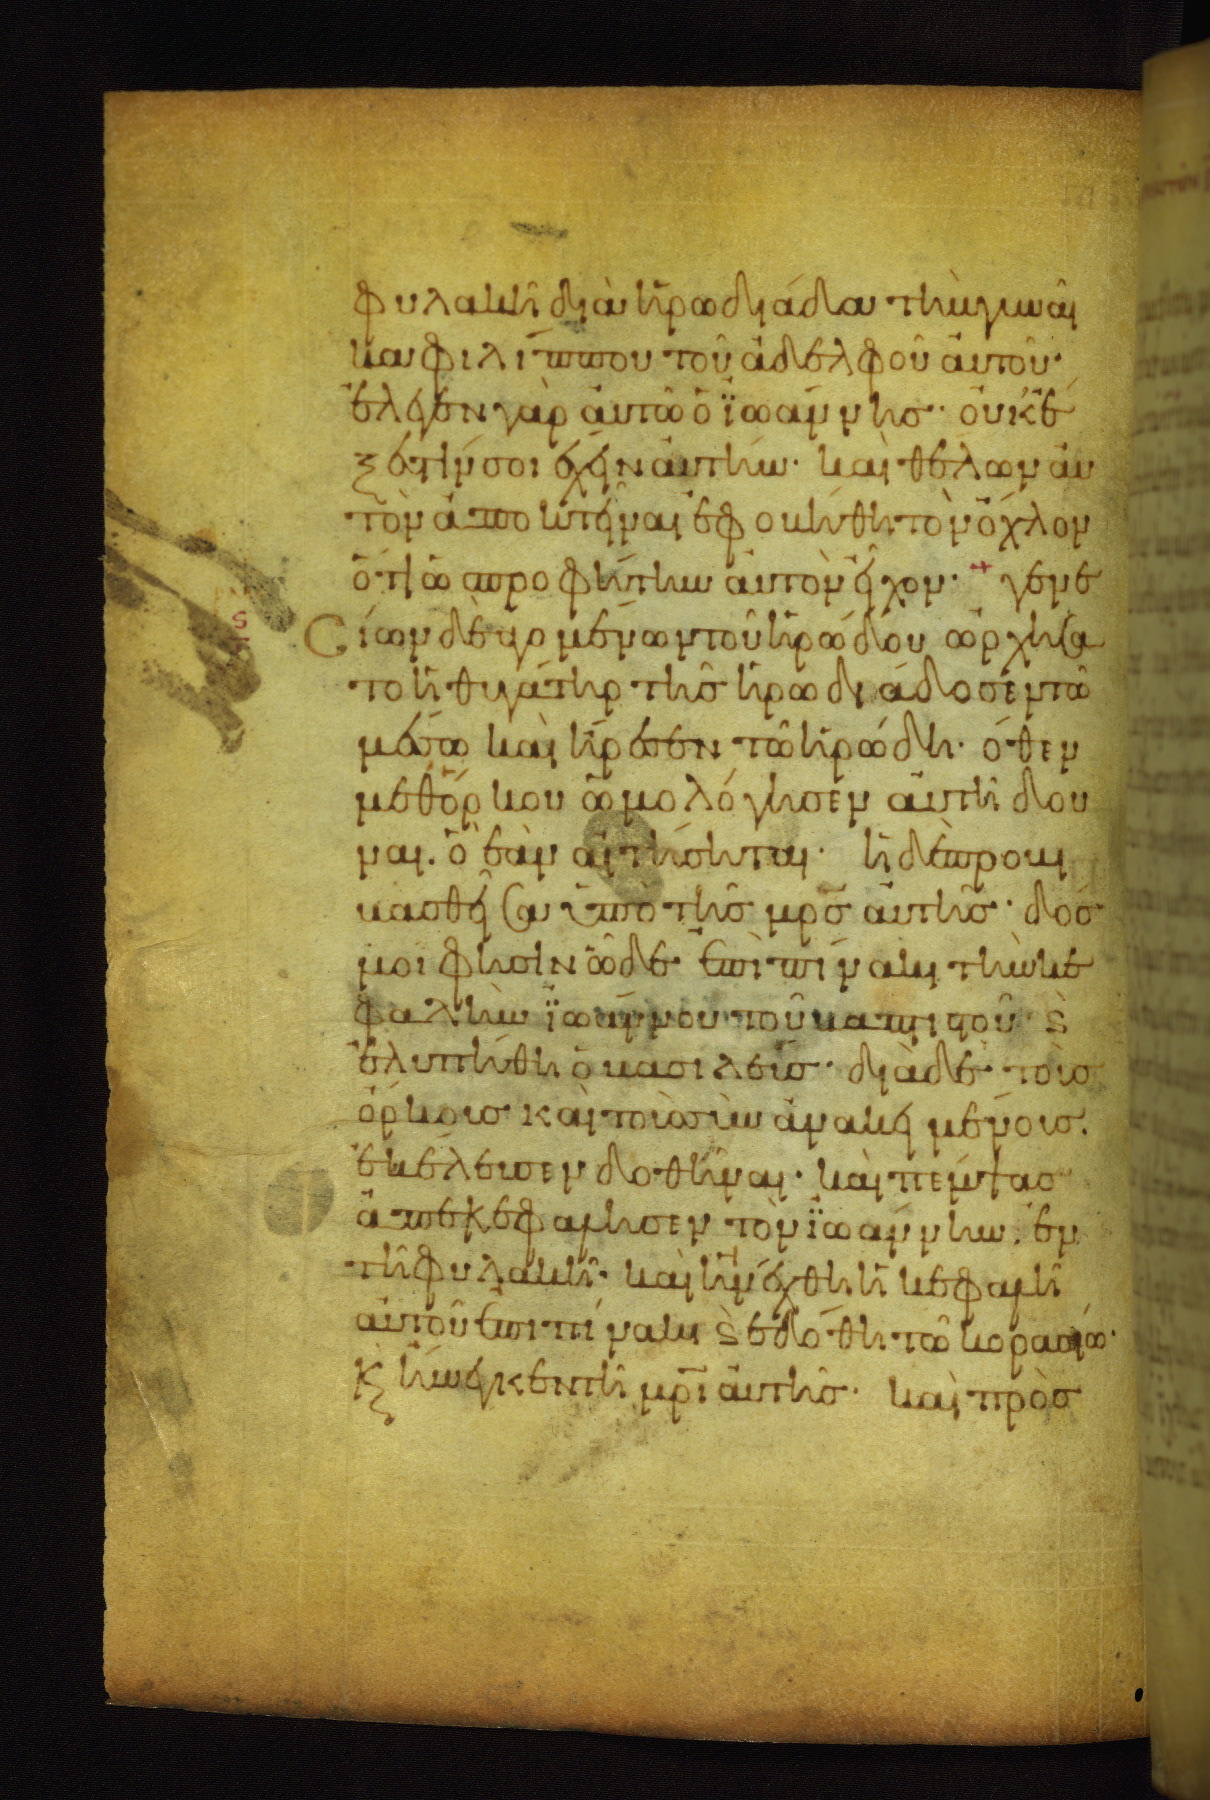 φυλακῆ διὰ ἡρωδιάδα τὴν γυναῖ
κα φιλίππου τοῦ ἀδελφοῦ αὐτοῦ·
ἔλεγεν γὰρ αὐτῶ ὁ ϊωάννης· οὐκ ἔ
ξεστίν σοι ἔχειν αὐτήν· καὶ θέλων αὐ
τὸν ἀποκτεῖναι ἐφοβήθη τὸν ὄχλον
ὅτι ὡς προφήτην αὐτὸν εἶχον· γενε
ϛ
σίων δὲ γενομένων τοῦ ἡρώδου ὠρχήσα
το ἡ θυγάτηρ τῆς ἡρωδιάδος ἐν τῶ
μέσω καὶ ἤρεσεν τῶ ἡρώδη· ὅθεν
μεθ' ὅρκου ὡμολόγησεν αὐτῆ δοῦ
ναι. ὃ ἐὰν αἰτήσηται· ἡ δὲ προβι
βασθεῖσα ὑπὸ τῆς μρ̅ς αὐτῆς· δός
μοι φησὶν ὧδε ἐπὶ πίνακι τὴν κε
φαλὴν ϊωάννου τοῦ βαπτιστοῦ· ϗ
ἐλυπήθη ὁ βασιλεύς· διὰ δὲ τοὺς
ὅρκους καὶ τοὺς συνανακειμένους.
ἐκέλευσεν δοθῆναι· καὶ πέμψας
ἀπεκεφάλησεν τὸν ϊωάννην. ἐν
τῆ φυλακῆ· καὶ ἠνέχθη ἡ κεφαλὴ
αὐτοῦ ἐπὶ πίνακι ϗ ἐδόθη τῶ κορασίω·
ϗ ἤνεγκεν τῆ μρ̅ι αὐτῆς· καὶ προσ